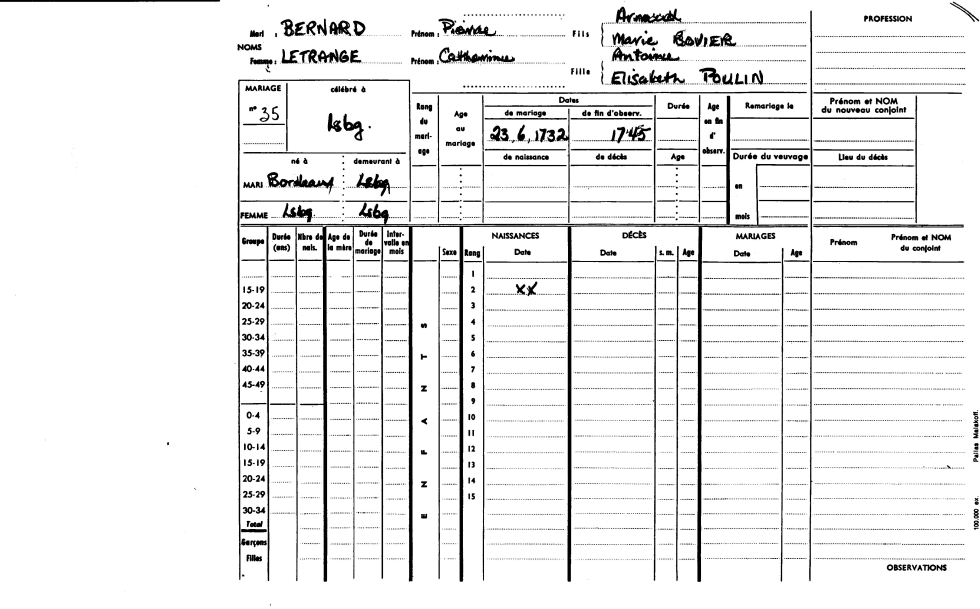 Mari : BERNARD Prénom : Pierre Fils Armand PROFESSION
Marie BOVIER
NOMS
Femme : LETRANGE Prénom : Catherine Fille Antoine
Elisabeth POULIN
MARIAGE célébré à
n° 35 Lsbg.
Rang du mariage Age au mariage Dates Durée Age en fin d'observ. Remariage le Prénom et NOM du nouveau conjoint
de mariage de fin d'observ.
23,6,1732 1745
né à demeurant à de naissance de décès Age Durée du veuvage Lieu du décès
MARI Bordeaux Lsbg en
FEMME Lsbg Lsbg mois
Groupe Durée (ans) Nbre de nais. Age de la mère Durée de mariage Intervalle en mois ENFANTS Sexe Rang NAISSANCES Date DÉCÈS Date s. m. Age MARIAGES Date Age Prénom Prénom et NOM du conjoint
1
15-19 2 XX
20-24 3
25-29 4
30-34 5
35-39 6
40-44 7
45-49 8
9
0-4 10
5-9 11
10-14 12
15-19 13
20-24 14
25-29 15
30-34
Total
Garçons
Filles
OBSERVATIONS
100.000 ex. Pallas Malakoff.